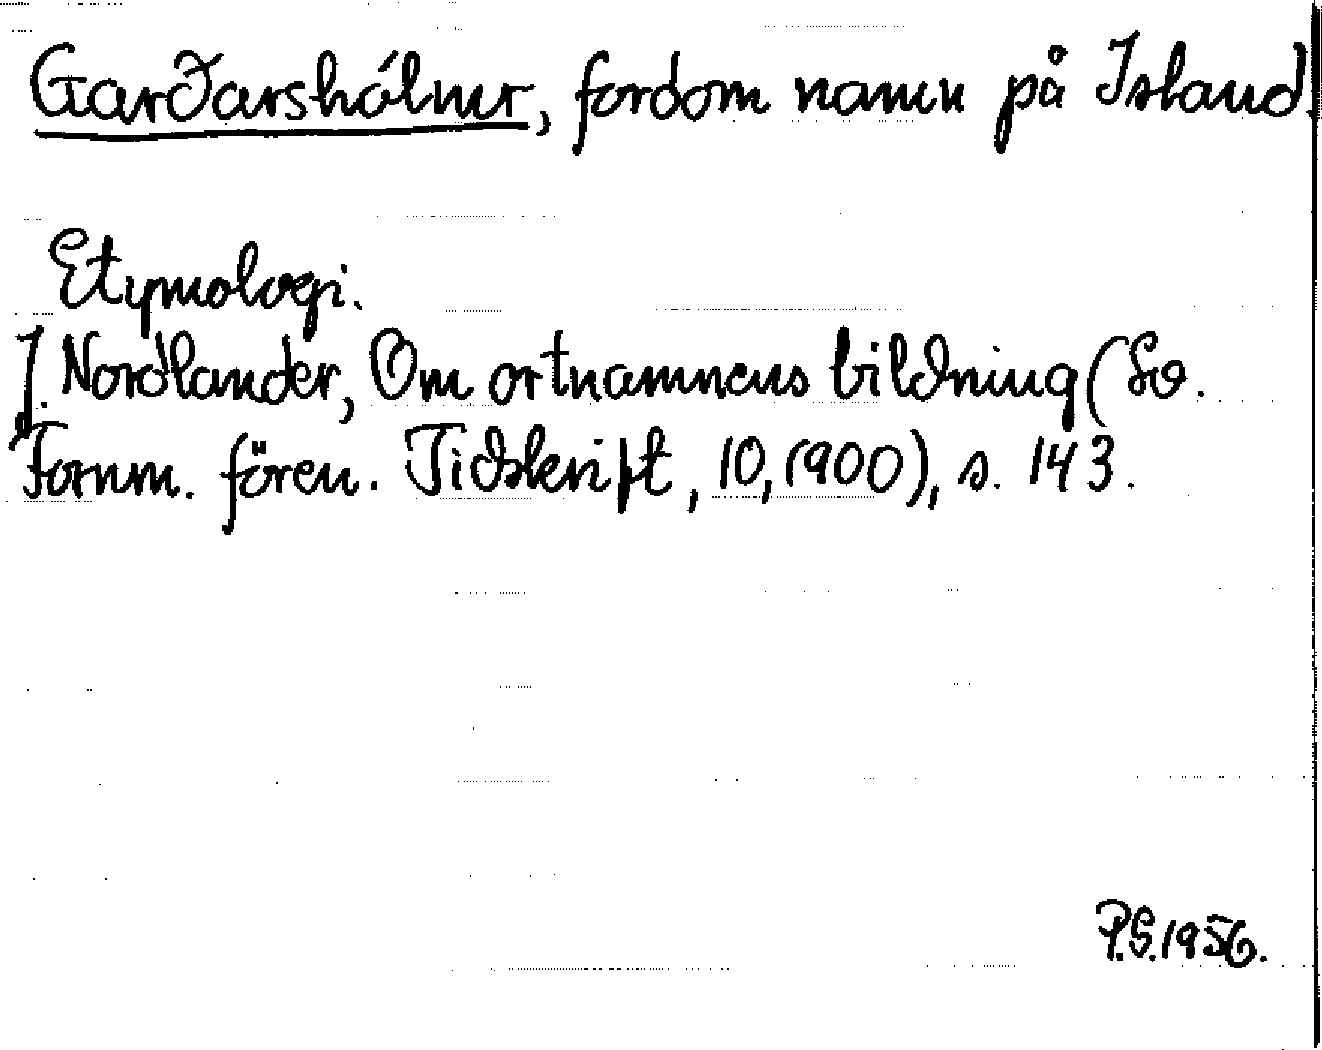 Garðarshólmr, fordom namn på Island.
Etymologi.
J. Nordlander, Om ortnamnens bildning (Sv.
Fornm. fören. Tidskrift, 10, (1900), s. 143.
P.S. 1956.